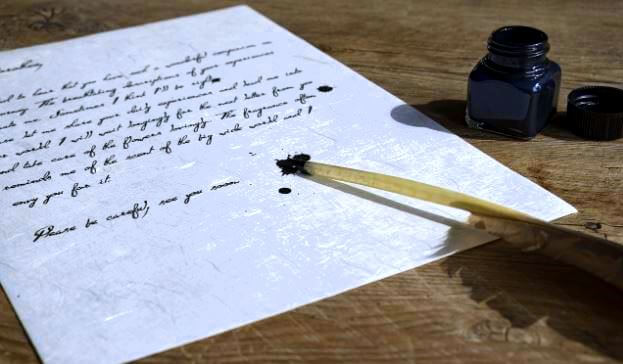 to hear that you have and a wonderful companion on
The breathtaking descriptions of your experiences
me. Sometimes I that I'll be right
let me share you daily experiences and dead me into
world. I will wait longingly for the next letter from you
and take care of the flowers lovingly. The fragrance often
reminds me of the scent of the big wide world and I
envy you for it.
Please be careful, see you soon